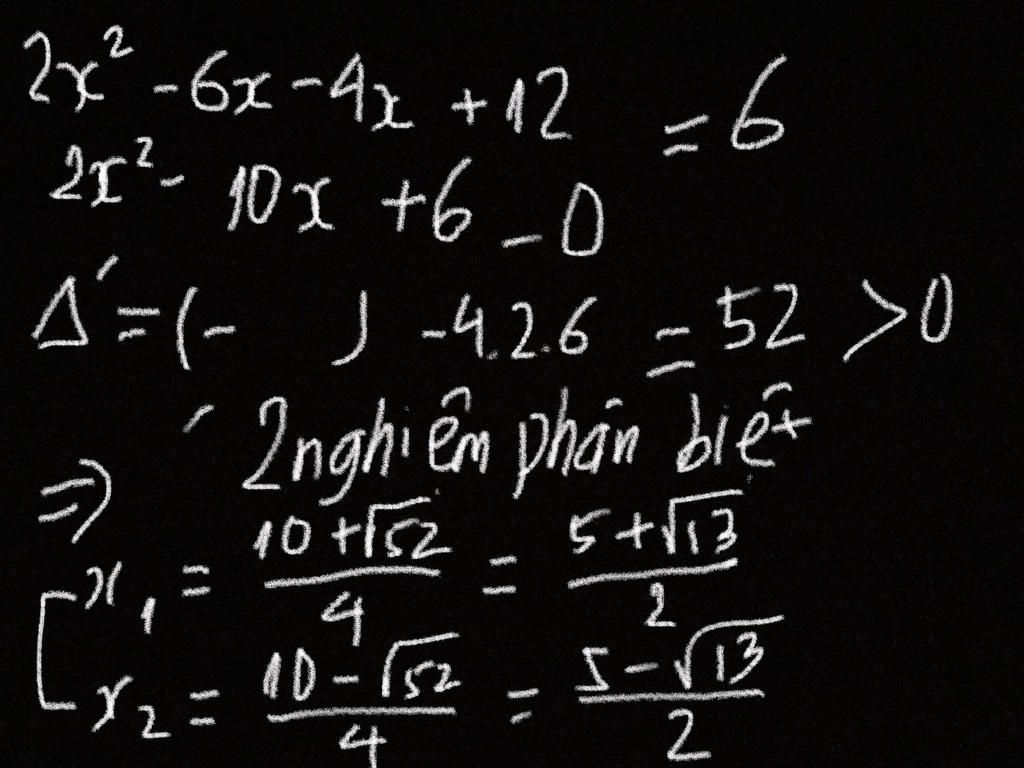 2x² - 6x - 4x + 12 = 6
2x² - 10x + 6 - 0
Δ' = (- ) - 4.2.6 = 52 > 0
⇒ 2 nghiêm phân biêt
[ x₁ = (10 + √52)/4 = (5 + √13)/2
x₂ = (10 - √52)/4 = (5 - √13)/2